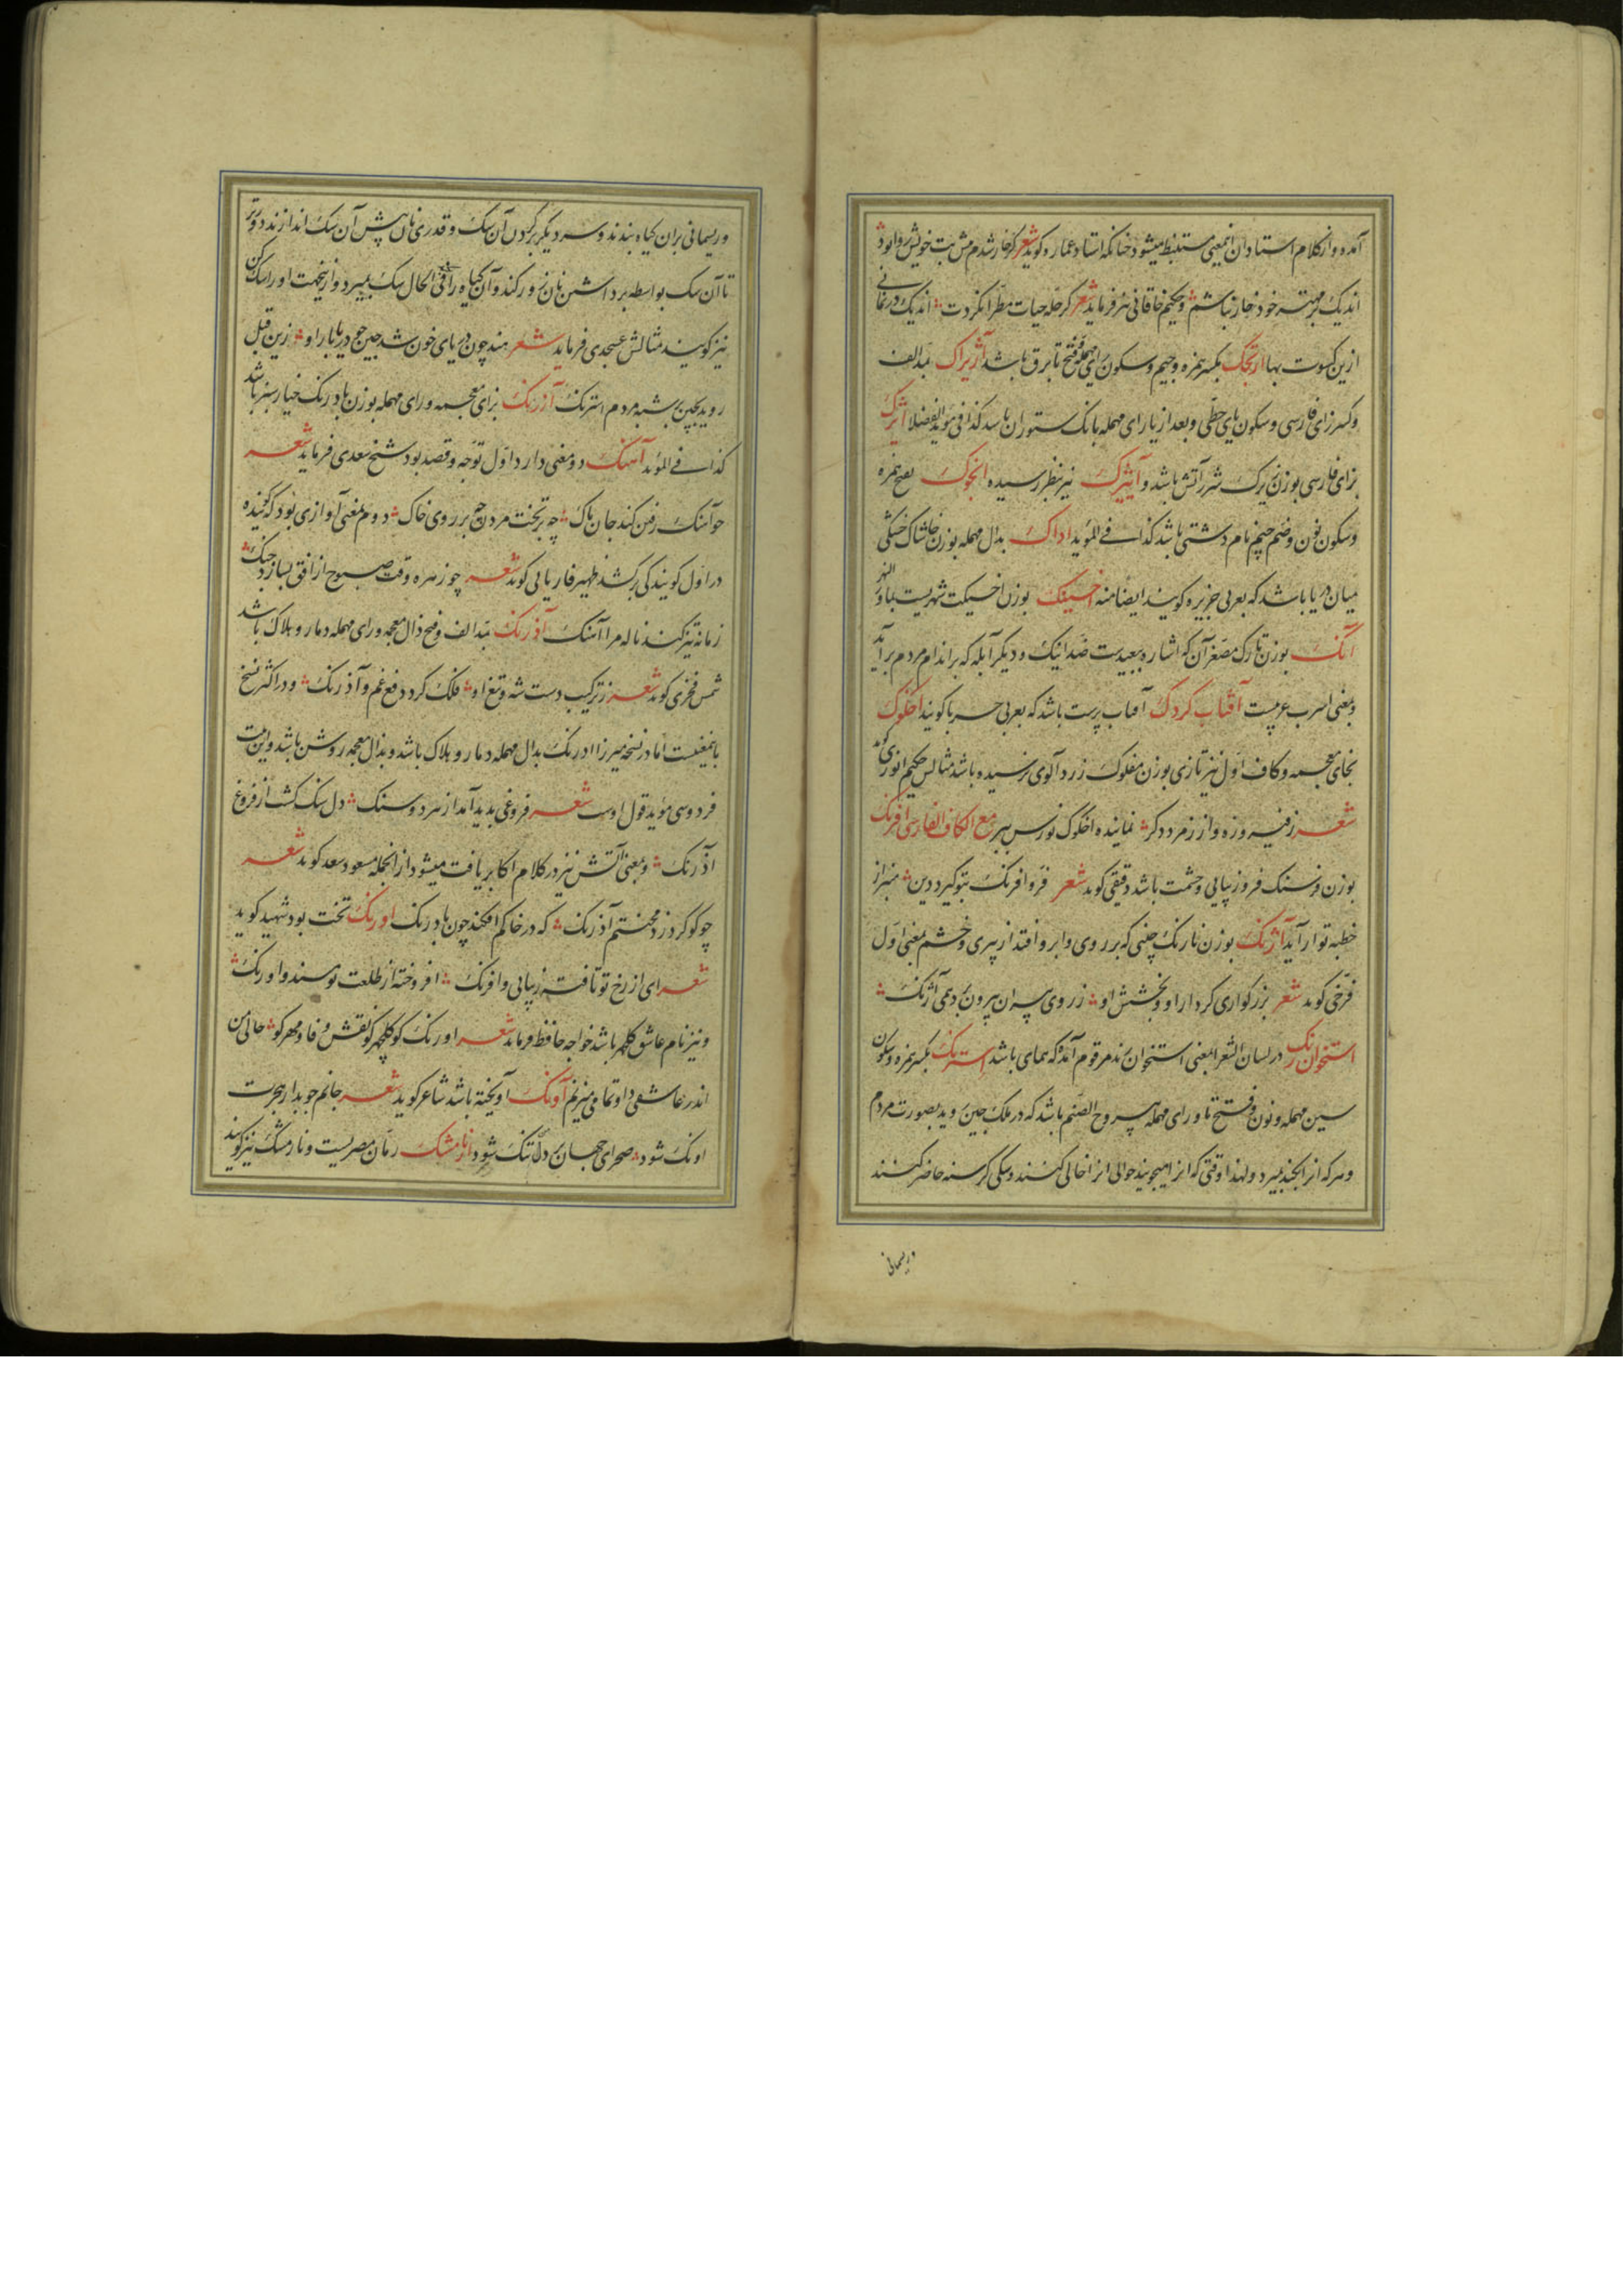 آمده و از کلام استادان اینمعنی مستنبط میشود چنانکه استاد عماره کوید شعر کر خار شدم من بت خویش روا بود
اندیک بر مهتر خود خار نباشم و حکیم خاقانی نیز فرماید شعر کر حله حیات مطرا نکردت اندیک در نمانی
ازین کسوت بها ارتجک بکسر همزه و جیم و سکون رای مهمله و فتح تا برق باشد آژیراک بمد الف
و کسر زای فارسی و سکون یای حطی و بعد از یا رای مهمله بانک ستوران باشد کذا فی موید الفضلا آیژک
بزای فارسی بوزن زیرک شرر آتش باشد و آییژک نیز بنظر رسیده انجوک بفتح همزه
و سکون نون و ضم جیم نام دشتی باشد کذا فی المؤید اداک بدال مهمله بوزن خاشاک خشکی
میان دریا باشد که بعربی جزیره کویند ایضا منه اخسیتک بوزن اخسیکت شهریست بماوراء النهر
آنک بوزن تارک مصغر آن که اشاره ببعیدست ضد اینک و دیکر آبله که بر اندام مردم بر آید
و بمعنی اسرب عربیست آفتاب کردک آفتاب پرست باشد که بعربی حربا کویند اخکوک
بخای معجمه و کاف اول نیز تازی بوزن مفلوک زرد آلوی نرسیده باشد مثالش حکیم انوری کوید
شعر ز فیروزه و از زمرد دکر نماینده اخکوک نورس ببر مع الکاف الفارسی افرنک
بوزن و سنک فر و زیبایی و حشمت باشد دقیقی کوید شعر فر و افرنک بتو کیرد دین منبر از
خطبه تو آراید آژنک بوزن نارنک چینی که بر روی و ابرو افتد از پیری و خشم بمعنی اول
فرخی کوید شعر بزرکواری کردار او و بخشش او ز روی پیران بیرون برد همی آژنک
استخوان رنک در لسان الشعرا بمعنی استخوان رند مرقوم آمده که همای باشد استرنک بکسر همزه و سکون
سین مهمله و نون و فتح تا و رای مهمله یبروح الصنم باشد که در ملک چین روید بصورت مردم
و هر که انرا بکند بمیرد و لهذا وقتی که انرا میجویند حوالی انرا خالی کنند و سکی کرسنه حاضر کنند
وریسمانی
و ریسمانی بران کیاه بندند و سر دیکر بر کردن آن سک و قدری نان پیش آن سک اندازند دورتر
تا آن سک بواسطه برداشتن نان زور کند و آن کیاه را فی الحال سک بمیرد و ازینجهت او را سک کن
نیز کویند مثالش عسجدی فرماید شعر هند چون دریای خون شد چین چو دریا بار او زین قبل
روید بچین بر شبه مردم استرنک آزرنک بزای معجمه و رای مهمله بوزن بادرنک خیار سبز باشد
کذا فی المؤید آهنک دو معنی دارد اول توجه و قصد بود شیخ سعدی فرماید شعر
چو آهنک رفتن کند جان پاک چه بر تخت مردن چه بر روی خاک دوم بمعنی آوازی بود که کوینده
در اول کویندکی برکشد ظهیر فاریابی کوید شعر چو زهره وقت صبوح از افق بسازد چنک
زمانه تیز کند ناله مرا آهنک آذرنک بمد الف و فتح ذال معجمه و رای مهمله دمار و هلاک باشد
شمس فخری کوید شعر ز ترکیب دست شه و تیغ او فلک کرد دفع غم و آذرنک و در اکثر نسخ
باینمعنیست اما در نسخه میرزا ادرنک بدال مهمله دمار و هلاک باشد و بذال معجمه روشن باشد و این بیت
فردوسی مؤید قول اوست شعر فروغی بدید آمد از هر دو سنک دل سنک کشت از فروغ
آذرنک و بمعنی آتش نیز در کلام اکابر یافت میشود از انجمله مسعود سعد کوید شعر
چو کوکرد زد محنتم آذرنک که در خاکم افکند چون بادرنک اورنک تخت بود شهید کوید
شعر ای از رخ تو تافته زیبایی و افرنک افروخته از طلعت تو مسند و اورنک
و نیز نام عاشق کلچهر باشد خواجه حافظ فرماید شعر اورنک کو کلچهر کو نقش وفا و مهر کو حالی من
اندر عاشقی داو تمامی میزنم آونک آویخته باشد شاعر کوید شعر جانم چو بدار هجرت
اونک شود صحرای جهان بر دلم تنک شود ازنارمشک رمان مصریست و نارمشک نیز کویند